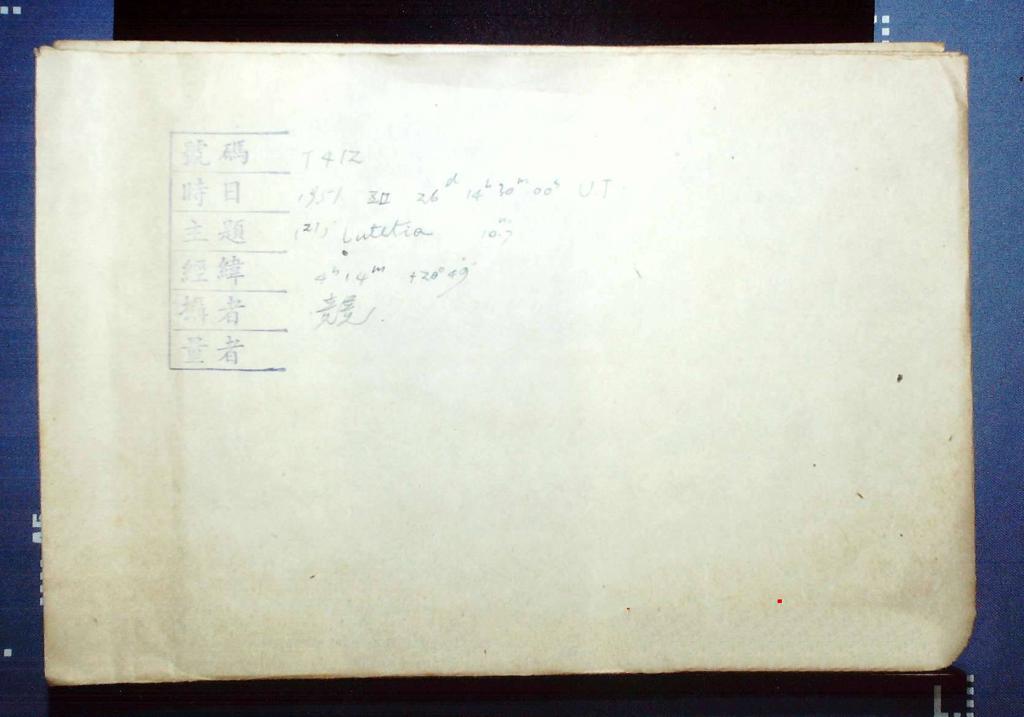 號碼 T412
時日 1951 XII 26ᵈ 14ʰ30ᵐ00ˢ UT
主題 (21) Lutetia 10ᵐ.7
經緯 4ʰ14ᵐ +20°49'
攝者
量者